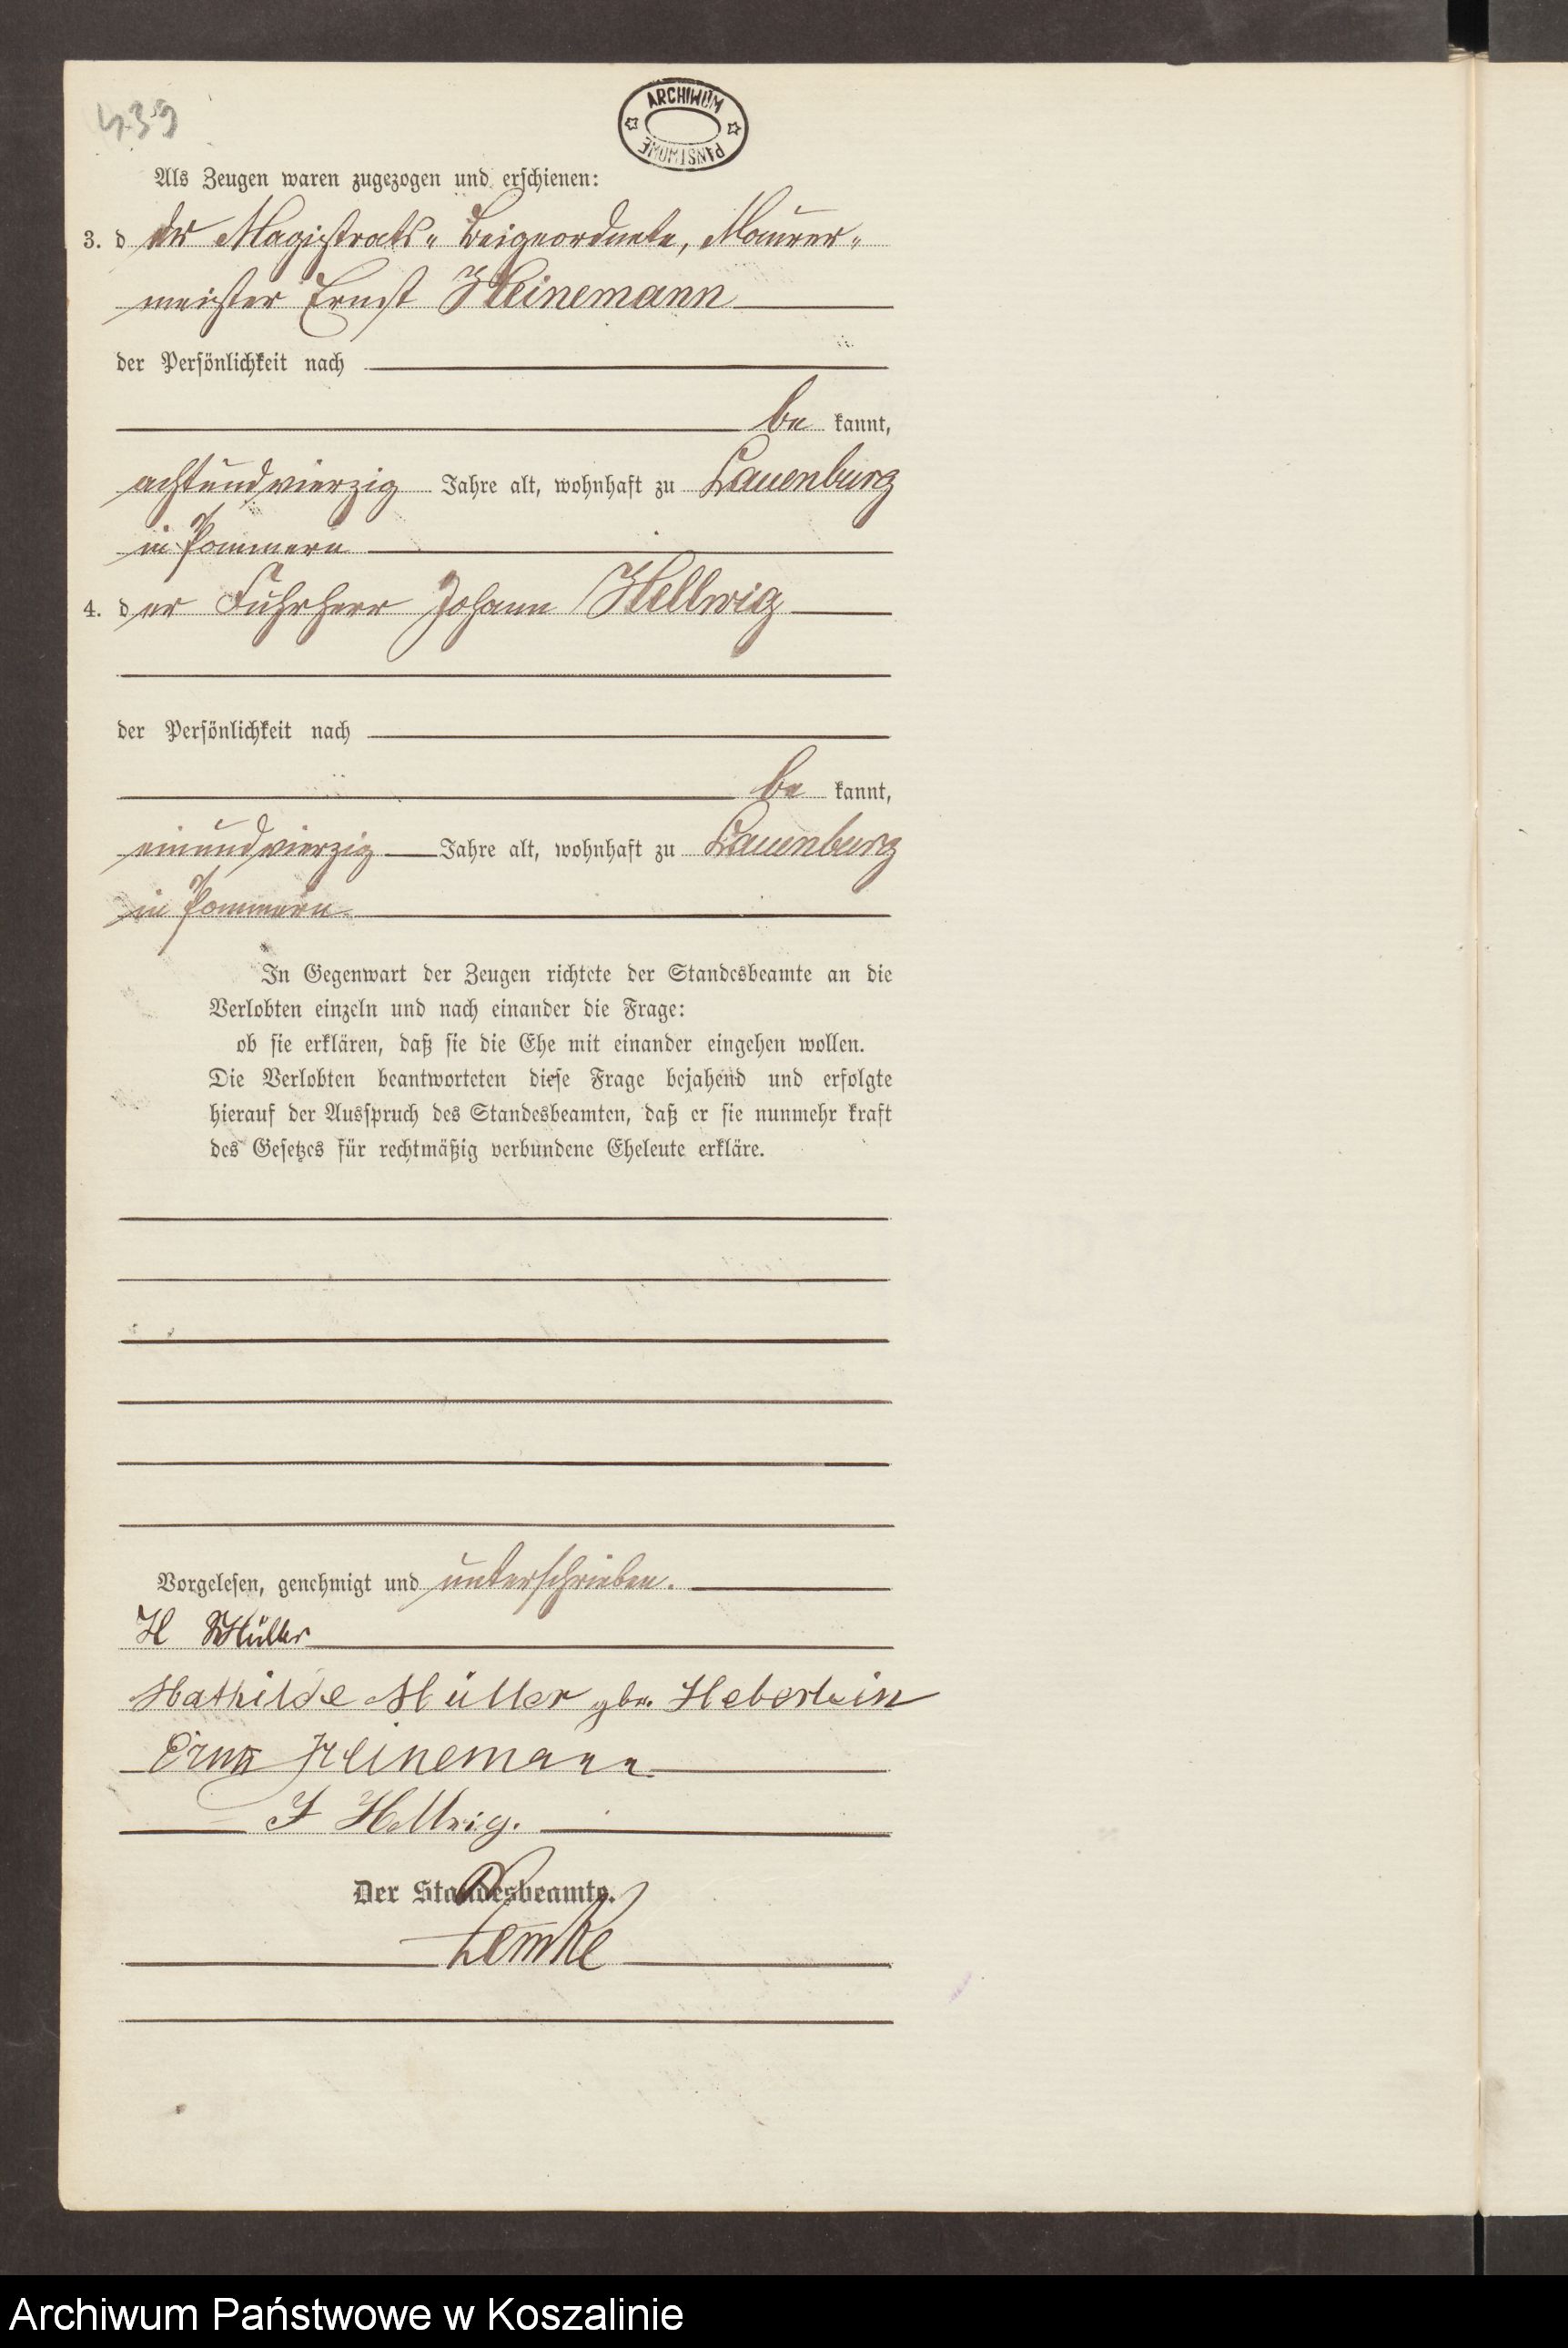 439
ARCHIWUM
PAŃSTWOWE
Als Zeugen waren zugezogen und erschienen:
3. d der Magistrats- Beigeordnete, Maurer-
meister Ernst Heinemann
der Persönlichkeit nach
be kannt,
achtundvierzig Jahre alt, wohnhaft zu Lauenburg
in Pommern
4. der Fuhrherr Johann Hellwig
der Persönlichkeit nach
be kannt,
einundvierzig Jahre alt, wohnhaft zu Lauenburg
in Pommern
In Gegenwart der Zeugen richtete der Standesbeamte an die
Verlobten einzeln und nach einander die Frage:
ob sie erklären, daß sie die Ehe mit einander eingehen wollen.
Die Verlobten beantworteten diese Frage bejahend und erfolgte
hierauf der Ausspruch des Standesbeamten, daß er sie nunmehr kraft
des Gesetzes für rechtmäßig verbundene Eheleute erkläre.
Vorgelesen, genehmigt und unterschrieben.
H Müller
Mathilde Müller gbr. Heberlein
Ernst Heinemann
J Hellwig.
Der Standesbeamte.
Lemke
Archiwum Państwowe w Koszalinie